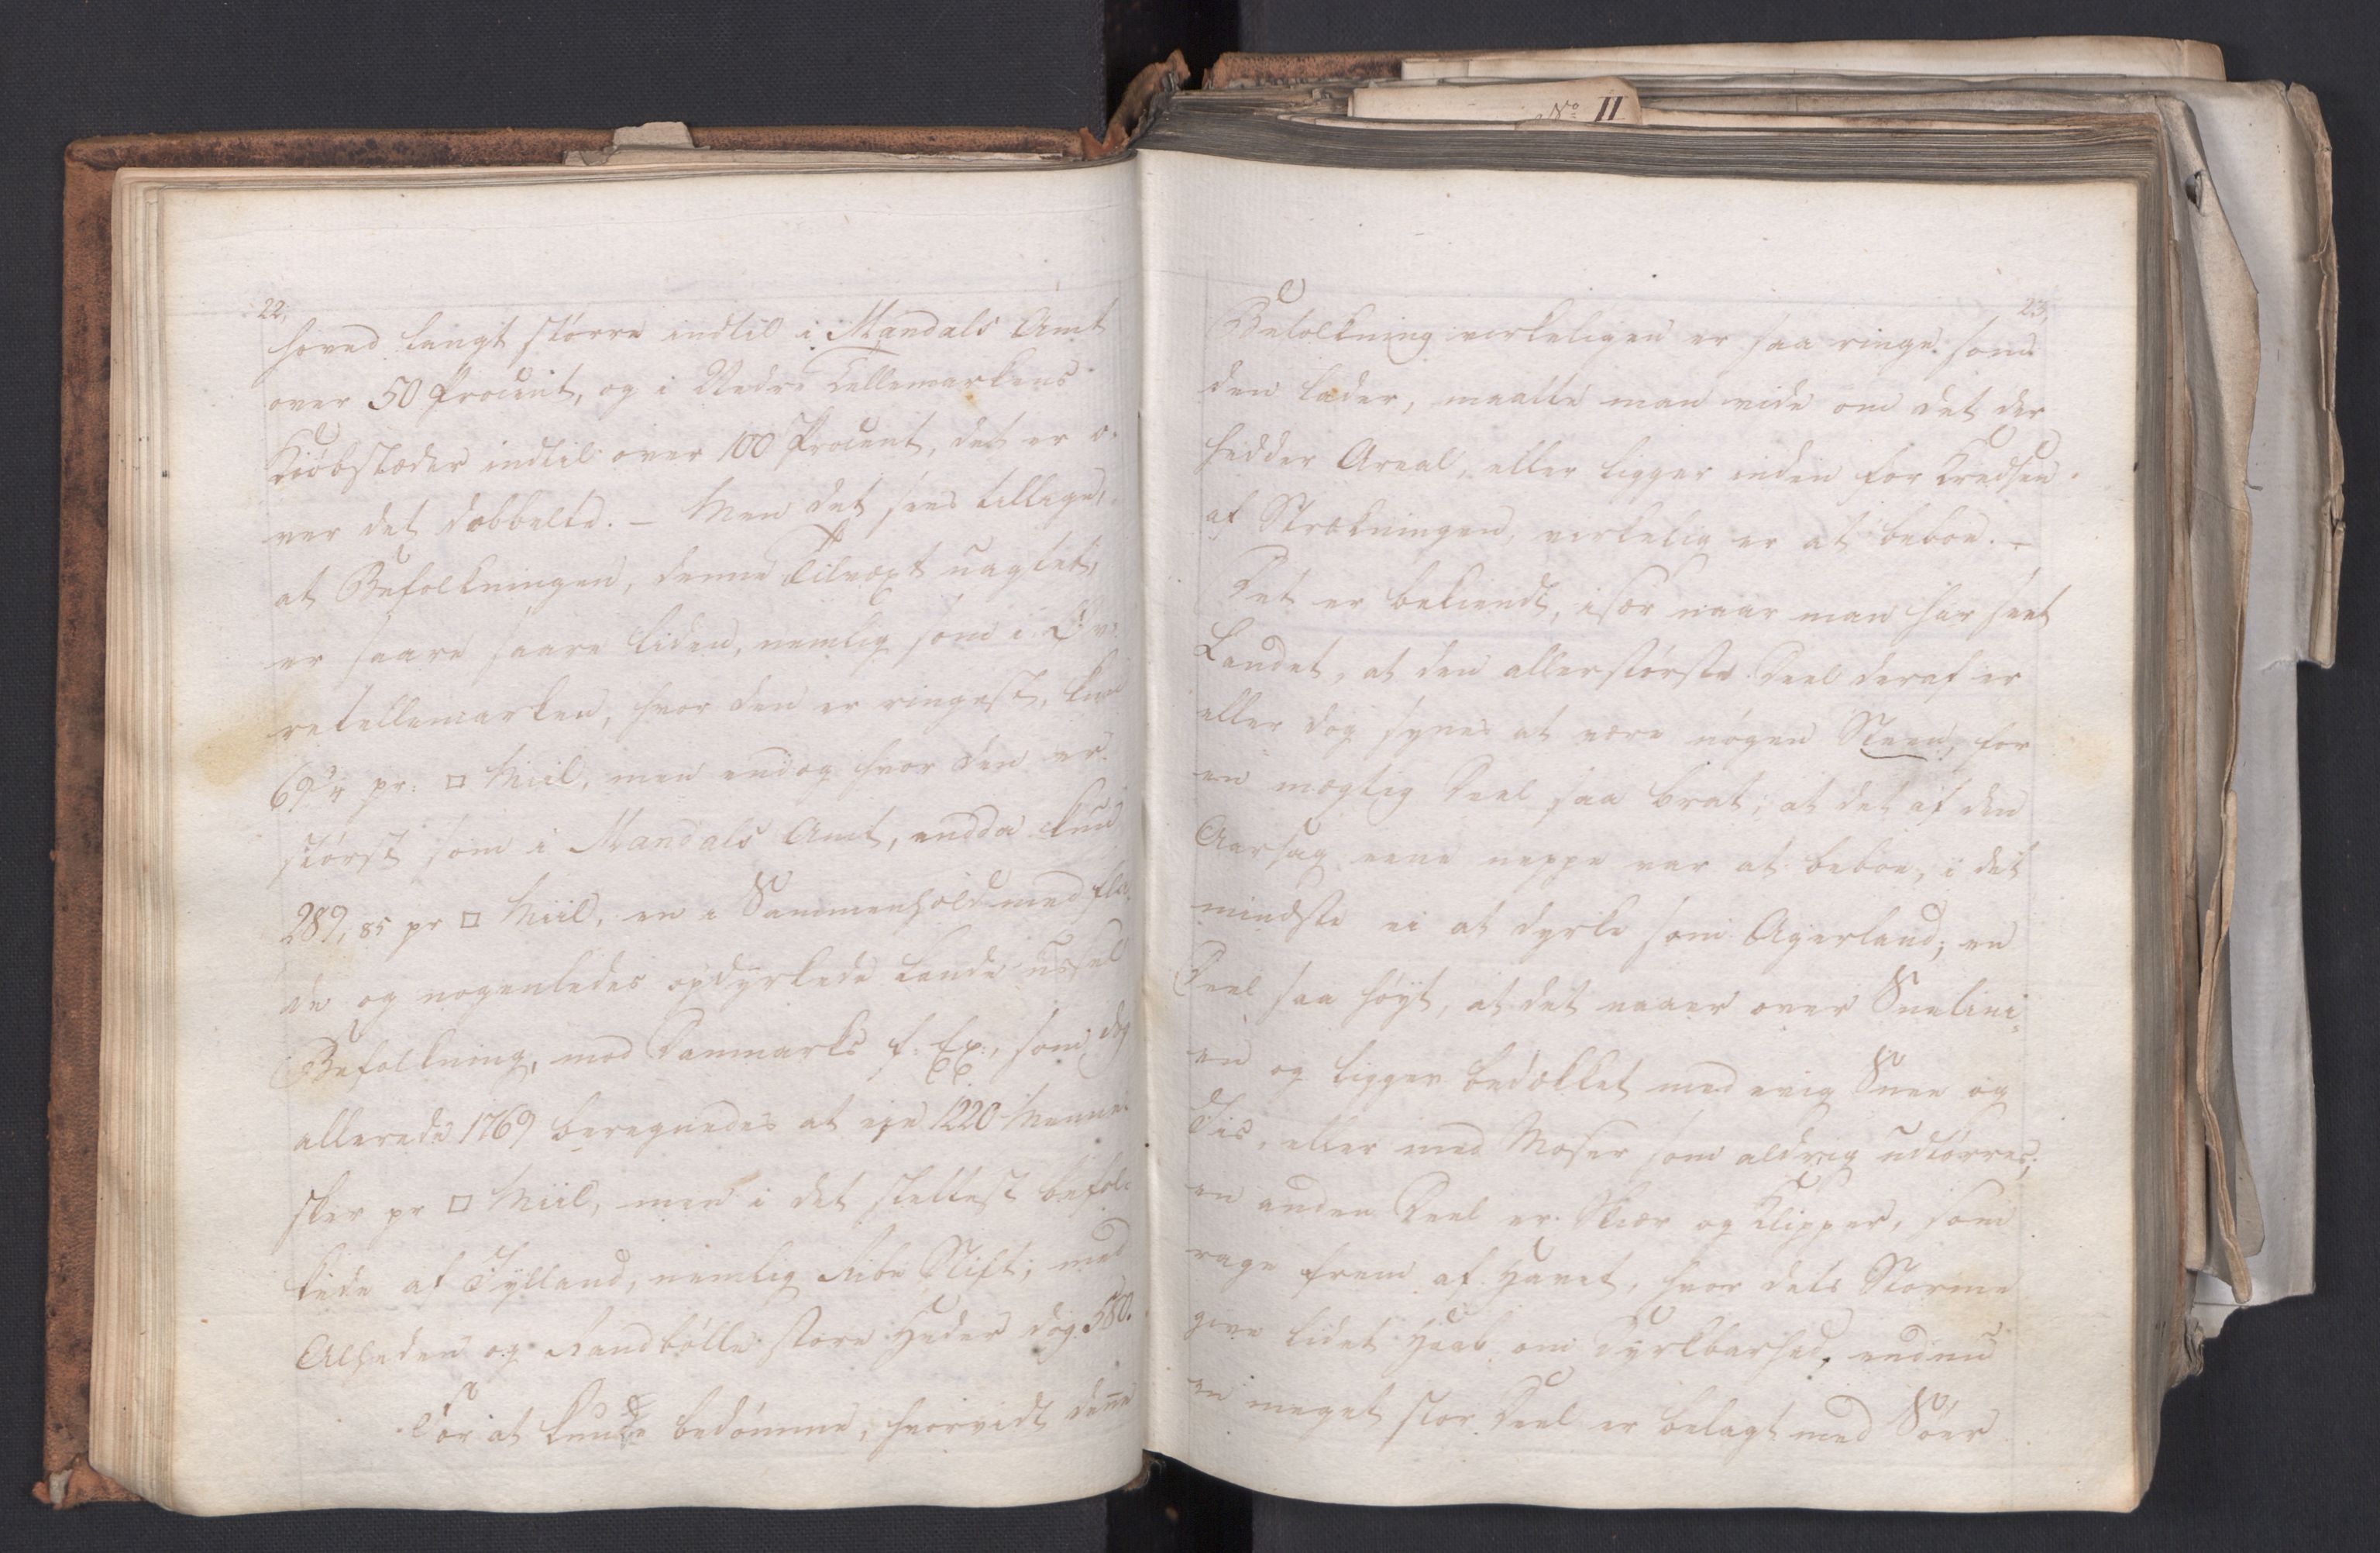 No II
22,
hoved langt større indtil i Mandals Amt
over 50 Procent, og i Nedre Tellemarkens
Kiøbstæder indtil over 100 Procent, det er o-
ver det dobbelte. – Men det sees tillige,
at Befolkningen, denne Tilvæxt uagtet,
er saare saare liden, nemlig som i Øv-
retellemarken, hvor den er ringest, kun
69 pr: □ Miil, men endog hvor den er
størst som i Mandals Amt, endda kun
289,85 pr □ Miil, en i Sammenhold med fla-
de og nogenledes opdyrkede Lande ussel
Befolkning, mod Danmarks f: Ex:, som dog
allerede 1769 beregnedes at eje 1220 Menne-
sker pr □ Miil, men i det slettest befol-
kede af Jylland, nemlig Ribe Stift, med
Alheden og Randbølle store Heder dog 580.
For at kunde bedømme, hvorvidt denne
23,
Befolkning virkeligen er saa ringe som
den lader, maatte man vide om det der
hedder Areal, eller ligger inden for Kredsen
af Strækningen, virkelig er at beboe. –
Det er bekiendt, især naar man har seet
Landet, at den allerstørste Deel deraf er
eller dog synes at være nøgen Steen, for
en mægtig Deel saa brat, at det af den
Aarsag ene neppe var at beboe, i det
mindste ei at dyrke som Agerland; en
Deel saa høyt, at det naaer over Sneelini-
en og ligger bedækket med evig Snee og
Iis, eller med Moser som aldrig udtørres;
en anden Deel er Skiær og Klipper, som
rage frem af Havet, hvor dets Storme
give lidet Haab om Dyrkbarhed, endnu
en meget stor Deel er belagt med Søer